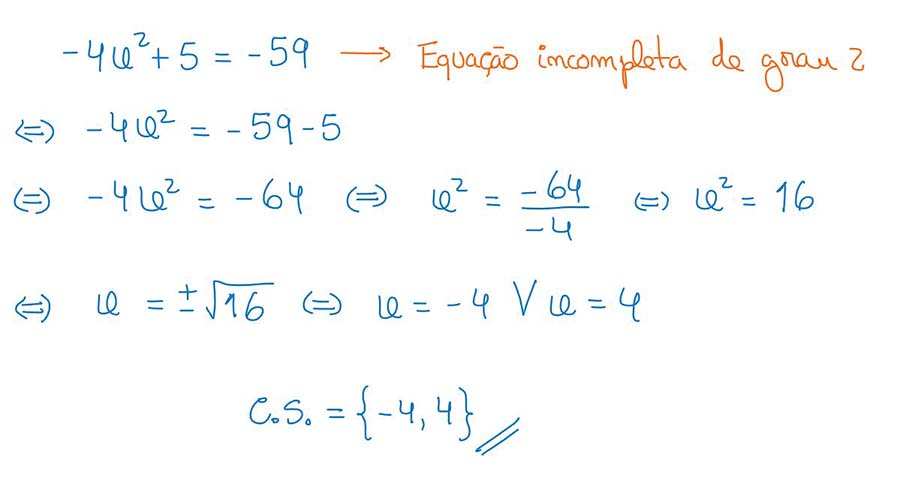 -4x² + 5 = -59 → Equação incompleta de grau 2
⇔ -4x² = -59 - 5
⇔ -4x² = -64 ⇔ x² = -64/-4 ⇔ x² = 16
⇔ x = ±√16 ⇔ x = -4 ∨ x = 4
C.S. = {-4, 4}